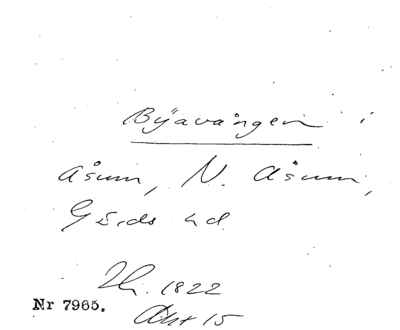 Byavången i
Åsum, N. Åsum,
Gärds hd
Lh. 1822
Akt 15
Nr 7965.